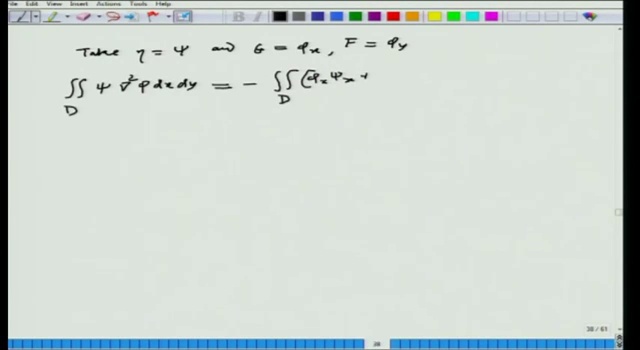 File Edit View Insert Actions Tools Help
Take η = ψ and G = φₓ, F = φᵧ
∬ ψ ∇²φ dx dy = - ∬ (φₓ ψₓ +
D D
38 / 61
38